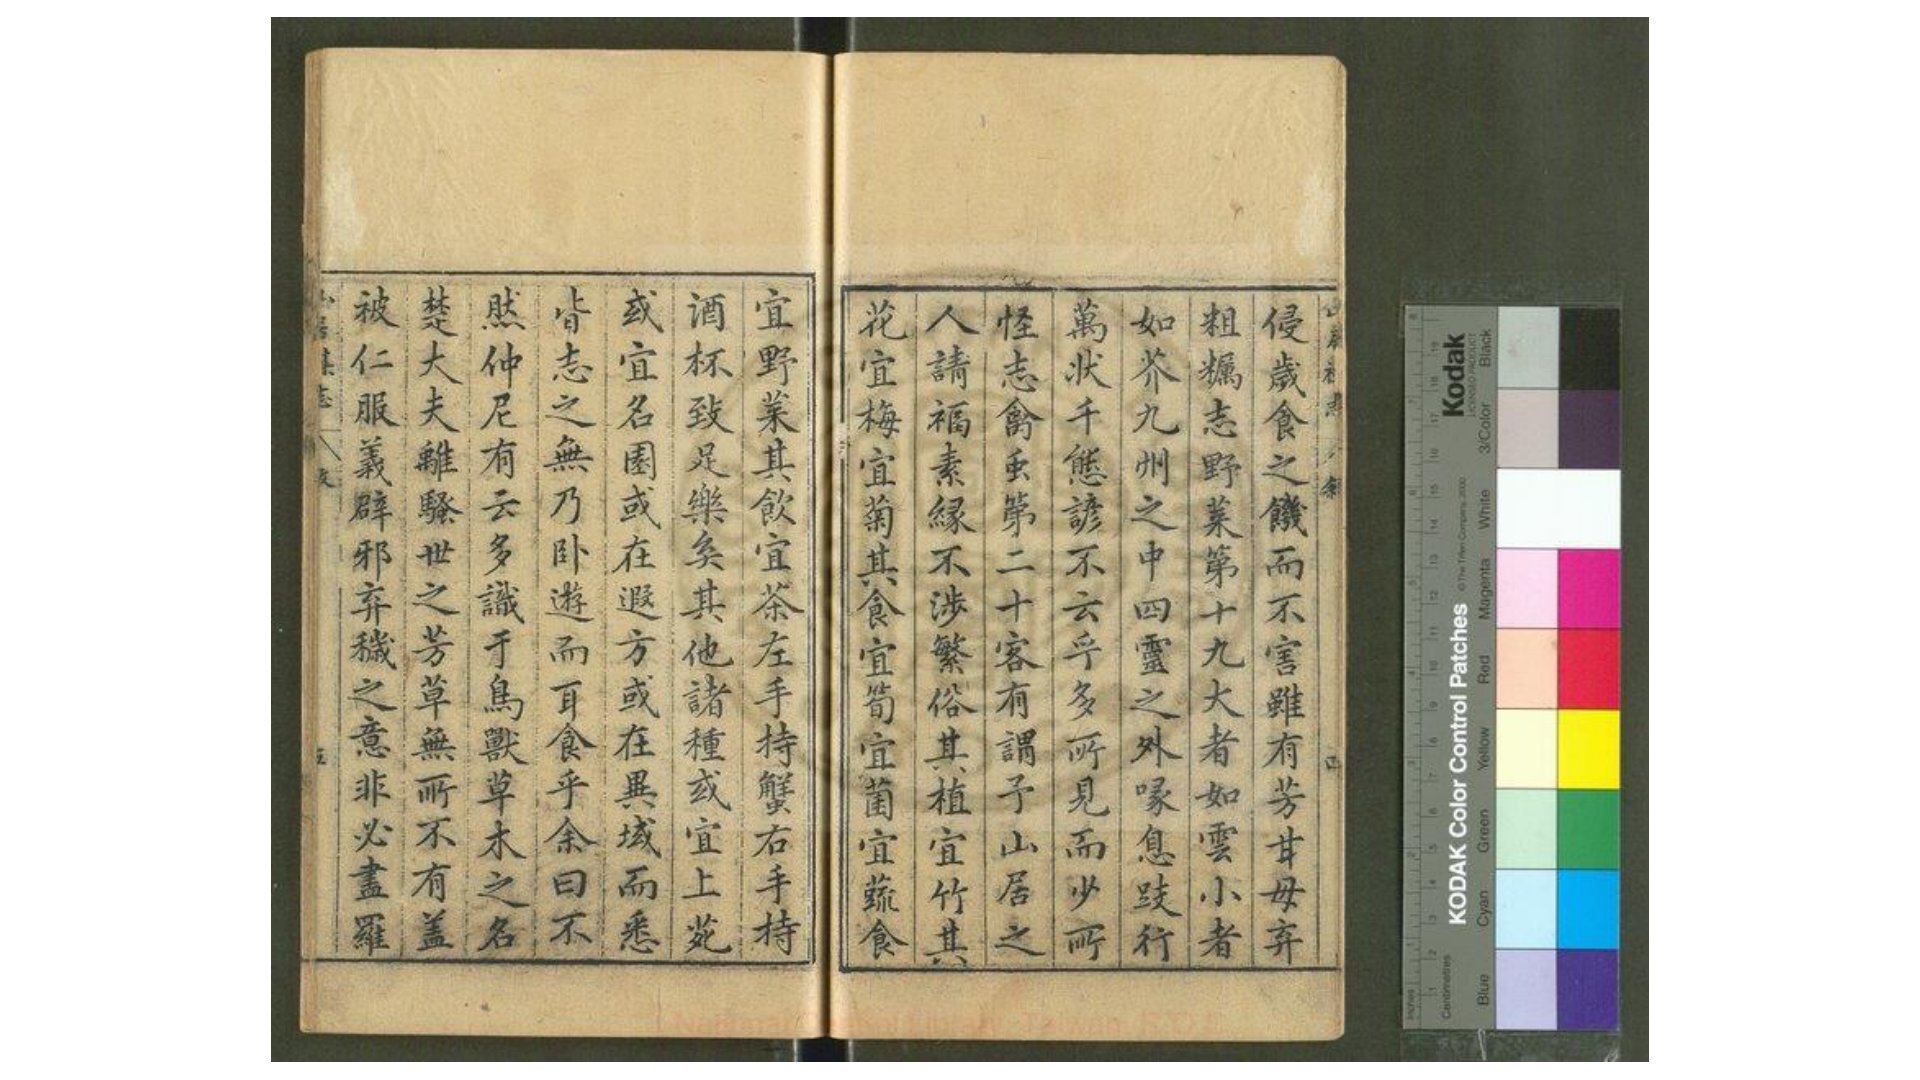 侵歲食之饑而不害雖有芳甘母弃
粗糲志野菜第十九大者如雲小者
如芥九州之中四靈之外喙息跂行
萬狀千態諺不云乎多所見而少所
怪志禽虫第二十客有謂予山居之
人請福素緣不涉繁俗其植宜竹其
花宜梅宜菊其食宜筍宜菌宜蔬食
宜野菜其飲宜茶左手持蟹右手持
酒杯致足樂矣其他諸種或宜上苑
或宜名園或在遐方或在異域而悉
皆志之無乃卧遊而耳食乎余曰不
然仲尼有云多識于鳥獸草木之名
楚大夫離騷世之芳草無所不有盖
被仁服義辟邪弃穢之意非必盡羅
Kodak
LICENSED PRODUCT
KODAK Color Control Patches
©The Tiffen Company, 2000
Black
3/Color
White
Magenta
Red
Yellow
Green
Cyan
Blue
Centimetres
Inches